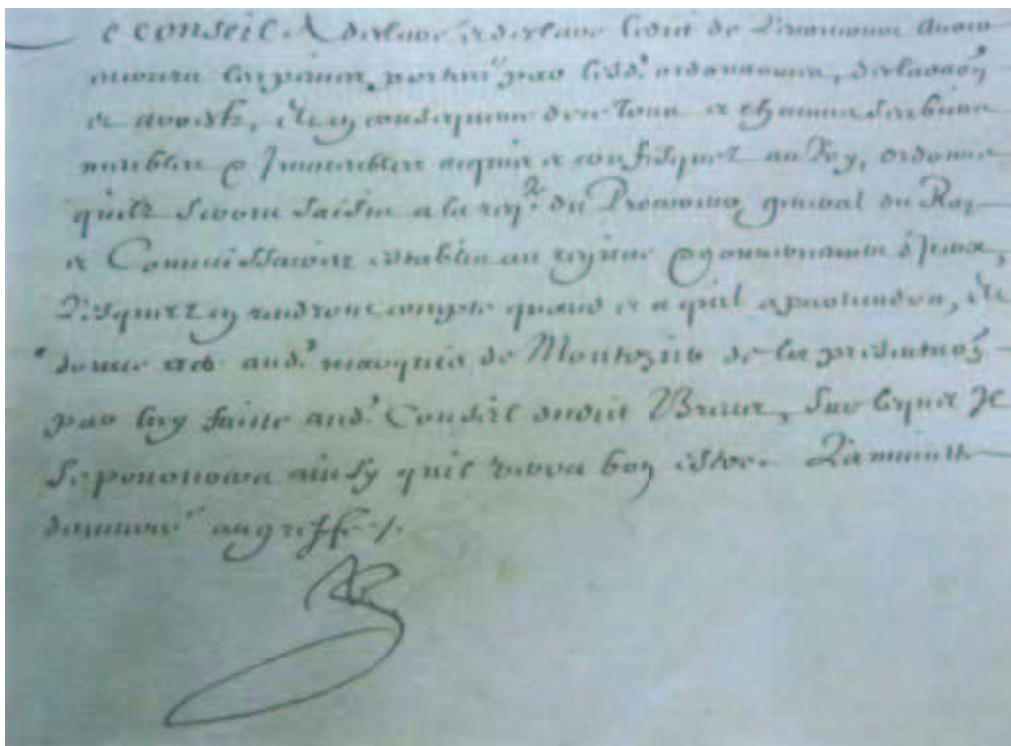 e conseil A declare et declare ledit de avoir
encouru les peines portées par lesd. ordonnances, declaraõn
et arrests, et en consequence tous et chacuns ses biens
meubles & Immeubles acquis et confisquez au Roy, ordonne
quils seront saisis a la reqte. du Procureur general du Roy
et Commissaires establis au regime & gouvernement diceux,
Lesquelz en rendront compte quand et a quil apartiendra, et
donne acte aud. marquis de de la presentaõn
par luy faite aud. Conseil dudit Sur lequel Je
ainsy quil verra bon estre. La minutte
demeure au greffe /.